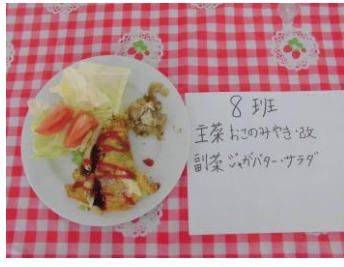 8班
主菜 おこのみやき・改
副菜 ジャガバター・サラダ